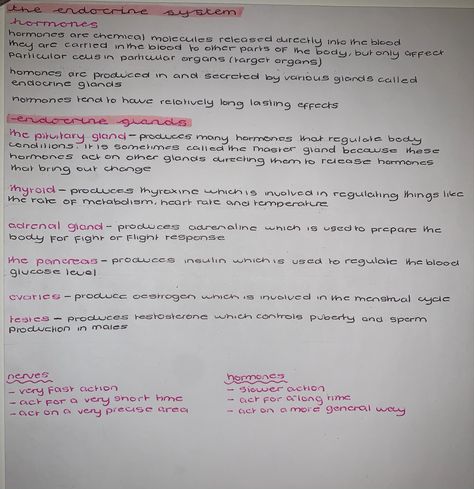 the endocrine system
hormones
hormones are chemical molecules released directly into the blood
they are carried in the blood to other parts of the body, but only affect
particular cells in particular organs (target organs)
hormones are produced in and secreted by various glands called
endocrine glands
hormones tend to have relatively long lasting effects
endocrine glands
the pituitary gland – produces many hormones that regulate body
conditions. it is sometimes called the master gland because these
hormones act on other glands directing them to release hormones
that bring out change
thyroid – produces thyroxine which is involved in regulating things like
the rate of metabolism, heart rate and temperature
adrenal gland – produces adrenaline which is used to prepare the
body for fight or flight response
the pancreas – produces insulin which is used to regulate the blood
glucose level
ovaries – produce oestrogen which is involved in the menstrual cycle
testes – produces testosterone which controls puberty and sperm
production in males
nerves
– very fast action
– act for a very short time
– act on a very precise area
hormones
– slower action
– act for a long time
– act on a more general way